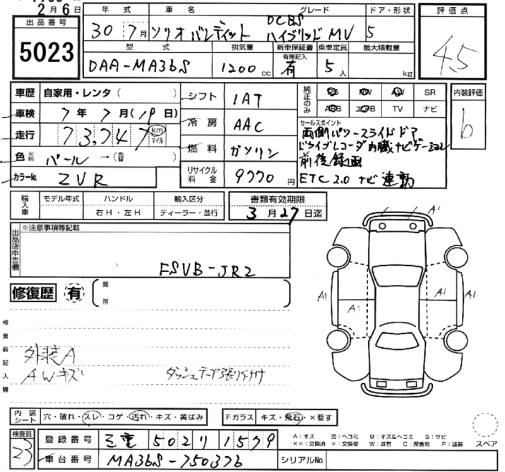 2月6日
出品番号
5023
年式 車名 グレード ドア・形状
30年7月 ソリオバンディット DCBS ハイブリッドMV 5
型式 排気量 新車保証書 乗車定員 最大積載量
DAA-MA36S 1200cc 有 5人 kg
評価点
4.5
車歴 自家用・レンタ
車検 7年7月19日
走行 73,747 km マイル
色 パール→
カラーNo. ZVR
シフト IAT
冷房 AAC
燃料 ガソリン
リサイクル料金 9770円
純正のみ SR
TV ナビ
セールスポイント
両側パワースライドドア
ドライブレコーダ内蔵ナビゲーション
前後録画
ETC2.0 ナビ連動
内装評価
b
輸入車 モデル年式 ハンドル 輸入区分
年 右H・左H ディーラー・並行
書類有効期限
3月27日迄
出品店申告欄
※注意事項等記載
FSVB-JR2
修復歴 有 箇所
A1
A1
A1
A1
検査員記入欄
外装A
AWキズ
内装シート 穴・破れ・スレ・コゲ・汚れ・キズ・黄ばみ
Fガラス キズ・飛石・×要す
スペア
検査員
23
登録番号 三重 502 り 1579
車台番号 MA36S-750376
シリアルNo.
A:キズ U:凹ミ B:キズ&凹ミ S:サビ